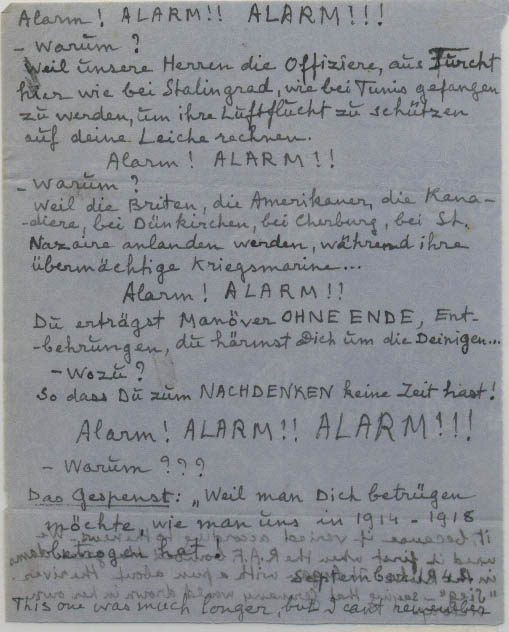 Alarm! ALARM!! ALARM!!!
- Warum?
Weil unsere Herren die Offiziere, aus Furcht
hier wie bei Stalingrad, wie bei Tunis gefangen
zu werden, um ihre Luftflucht zu schützen
auf deine Leiche rechnen.
Alarm! ALARM!!
- Warum?
Weil die Briten, die Amerikaner, die Kana-
-diere, bei Dünkirchen, bei Cherburg, bei St.
Nazaire anlanden werden, während ihre
übermächtige Kriegsmarine...
Alarm! ALARM!!
Du erträgst Manöver OHNE ENDE, Ent-
-behrungen, du härmst Dich um die Deinigen...
- Wozu?
So dass Du zum NACHDENKEN keine Zeit hast!
Alarm! ALARM!! ALARM!!!
- Warum???
Das Gespenst: „Weil man Dich betrügen
möchte, wie man uns in 1914-1918
betrogen hat.
September
This one was much longer, but I can't remember